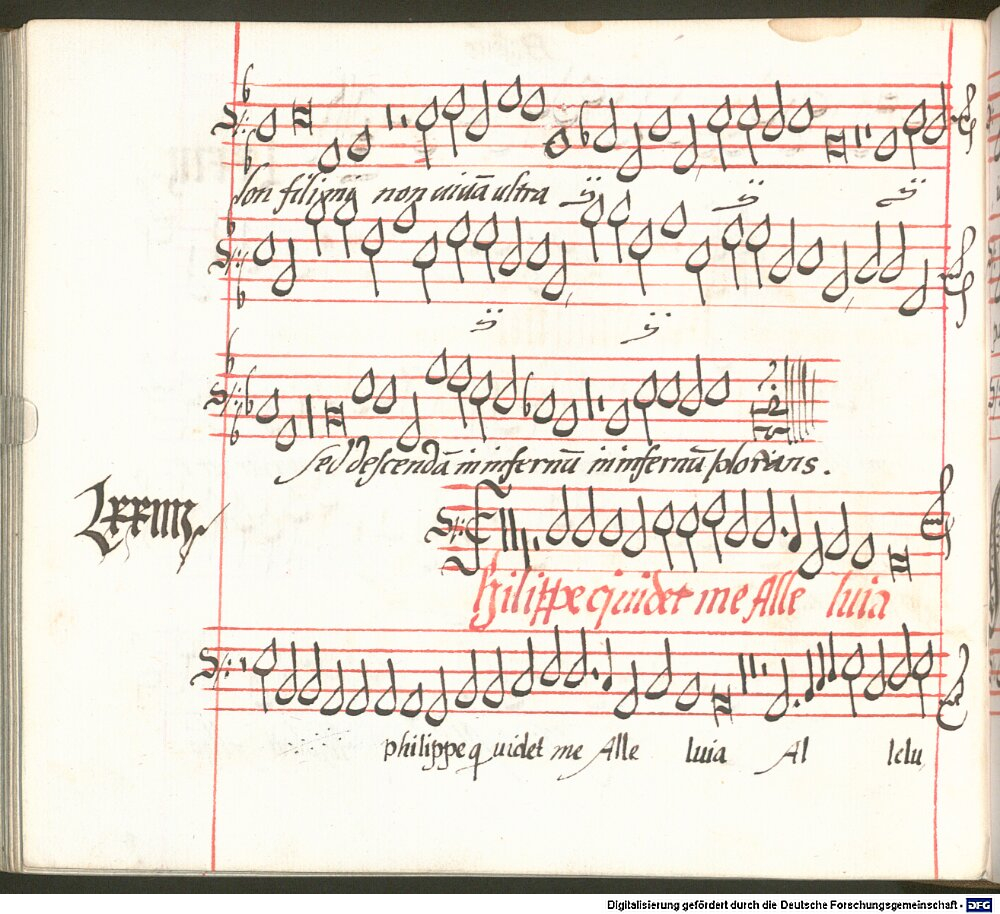 lon fili mi non vivā ultra ij ij ij
ij ij
sed descendā in infernū in infernū plorans.
Lxxiiij.
Philippe qui videt me Alle luia
philippe q videt me Alle luia Al lelu
Digitalisierung gefördert durch die Deutsche Forschungsgemeinschaft - DFG